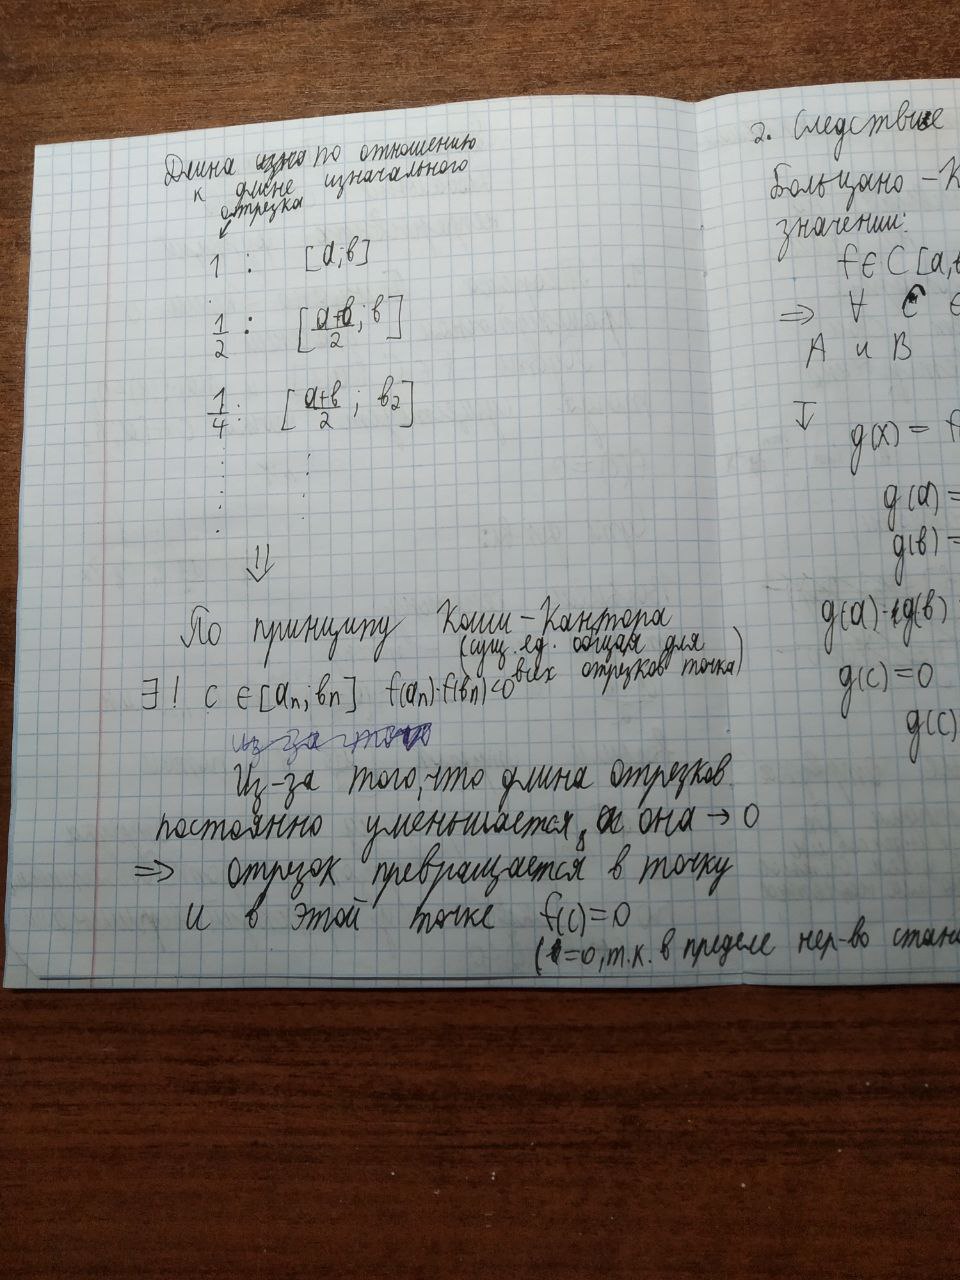 Длина по отношению
к длине изначального
отрезка
1 : [a;b]
1/2 : [a+b/2; b]
1/4 : [a+b/2; b₂]
⇓
По принципу Коши-Кантора
(сущ. ед. общая для
всех отрезков точка)
∃! c ∈ [aₙ; bₙ] f(aₙ)·f(bₙ)<0
из-за того
Из-за того, что длина отрезков
постоянно уменьшается, а она → 0
⇒ отрезок превращается в точку
и в этой точке f(c)=0
(=0, т.к. в пределе нер-во стано
2. Следствие
Больцано-К
значении:
f∈C[a,b
⇒ ∀ C ∈
A и B
g(x) = f
g(a) =
g(b) =
g(a)·g(b)
g(c)=0
g(c)